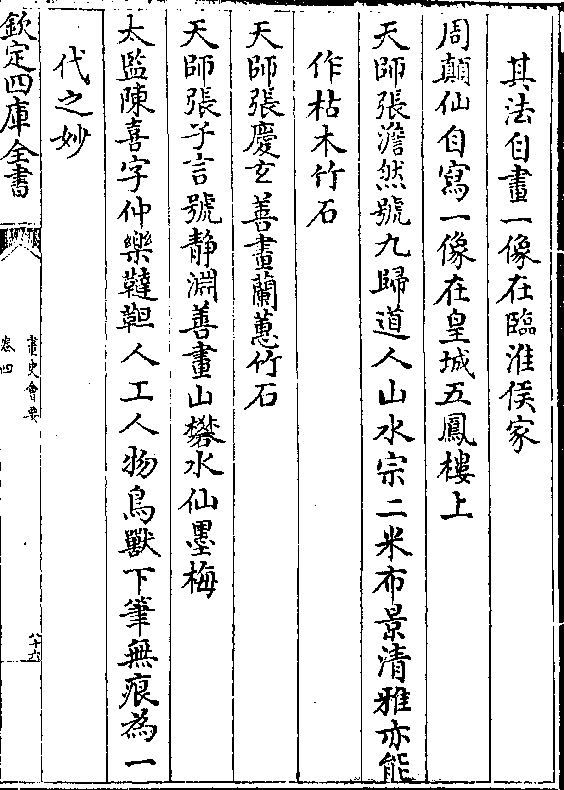 其法自畫一像在臨淮侯家
周顛仙自寫一像在皇城五鳳樓上
天師張澹然號九歸道人山水宗二米布景清雅亦能
作枯木竹石
天師張慶玄善畫蘭蕙竹石
天師張子言號靜淵善畫山礬水仙墨梅
太監陳喜字仲樂韃靼人工人物鳥獸下筆無痕為一
代之妙
欽定四庫全書
畫史會要
卷四
八十六